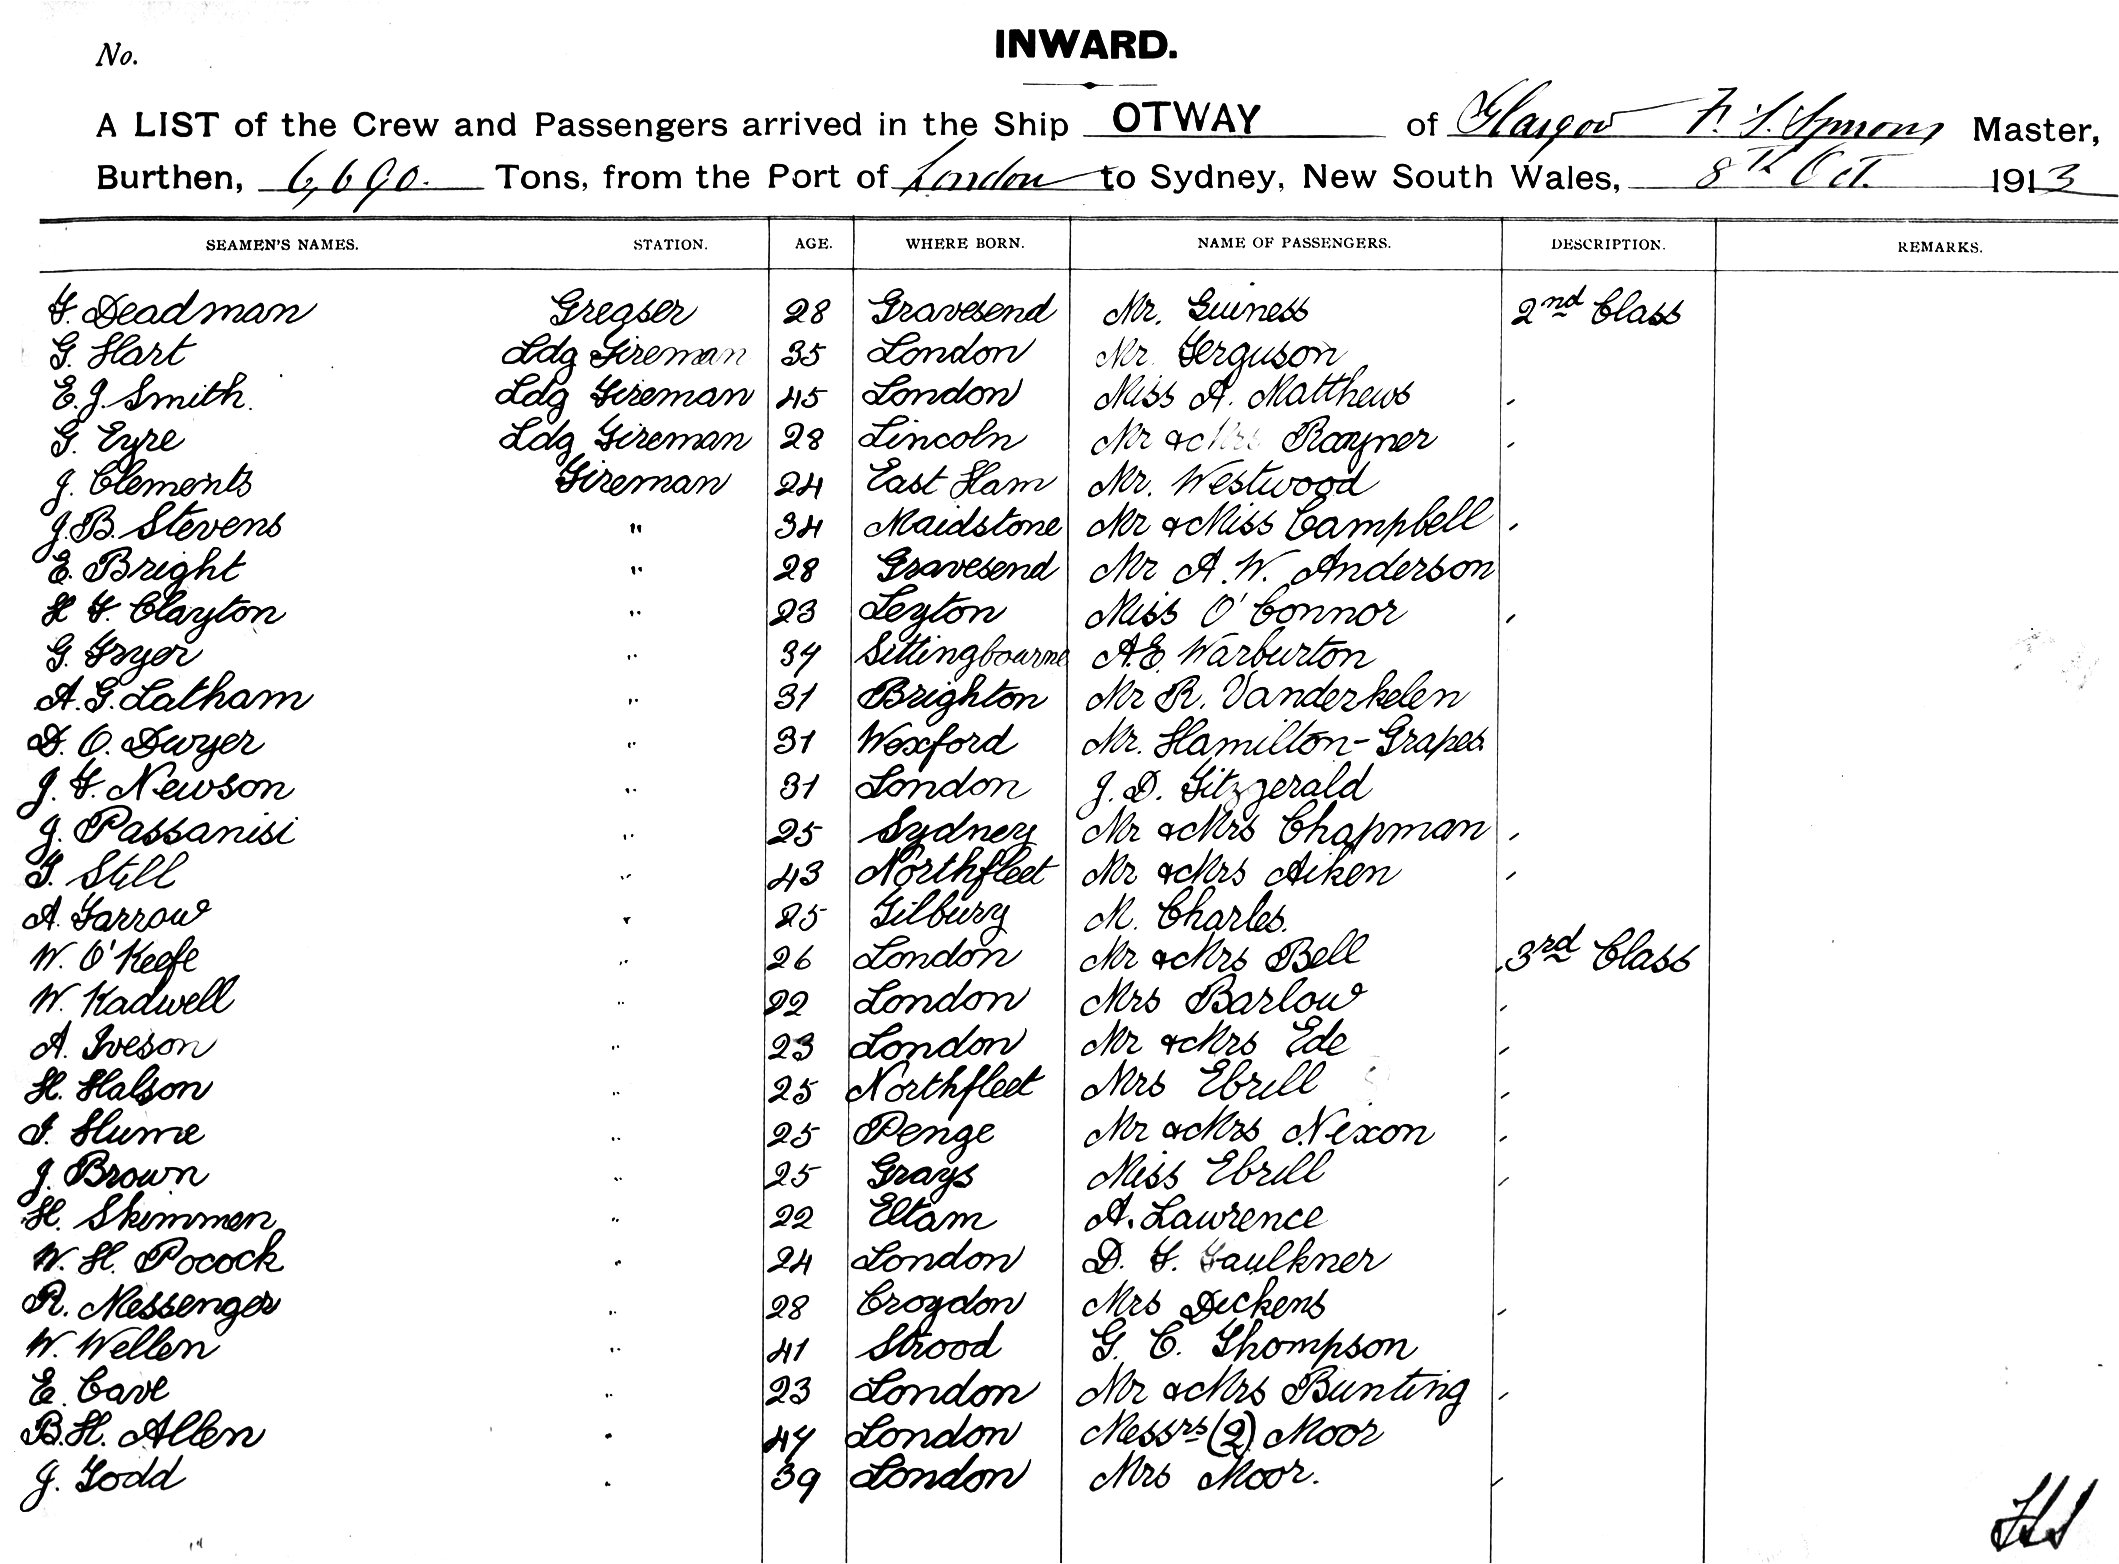 No.
INWARD.
A LIST of the Crew and Passengers arrived in the Ship OTWAY of Glasgow F. S. Symons Master,
Burthen, 6,690. Tons, from the Port of London to Sydney, New South Wales, 8TH Oct. 1913
SEAMEN'S NAMES. STATION. AGE. WHERE BORN. NAME OF PASSENGERS. DESCRIPTION. REMARKS.
F. Deadman Greaser 28 Gravesend Mr. Guiness 2nd Class
G. Hart Ldg Fireman 35 London Mr. Ferguson
E. J. Smith. Ldg Fireman 45 London Miss A. Matthews
G. Eyre Ldg Fireman 28 Lincoln Mr & Mrs Rayner
J. Clements Fireman 24 East Ham Mr. Westwood
J. B. Stevens " 34 Maidstone Mr & Miss Campbell
E. Bright " 28 Gravesend Mr A. W. Anderson
H F. Clayton " 23 Leyton Miss O'Connor
G. Fryer " 34 Sittingbourne A.E. Warburton
A. G. Latham " 31 Brighton Mr R. Vanderkelen
D. O. Dwyer " 31 Wexford Mr. Hamilton-Grapes
J. F. Newson " 31 London J. D. Fitzgerald
J. Passanisi " 25 Sydney Mr & Mrs Chapman
Still " 43 Northfleet Mr & Mrs Aiken
A. Farrow " 25 Tilbury M. Charles.
W. O'Keefe " 26 London Mr & Mrs Bell 3rd Class
W. Kadwell " 22 London Mrs Barlow
A. Iveson " 23 London Mr & Mrs Ede
H. Halson " 25 Northfleet Mrs Ebrill
Hume " 25 Penge Mr & Mrs Nixon
J. Brown " 25 Grays Miss Ebrill
H. Skimmen " 22 Eltam A. Lawrence
W. H. Pocock " 24 London D. F. Faulkner
R. Messenger " 28 Croydon Mrs Dickens
W. Wellen " 41 Strood G. C. Thompson
E. Cave " 23 London Mr & Mrs Bunting
B. H. Allen " 47 London Messrs (2) Moor
J. Todd " 39 London Mrs Moor.